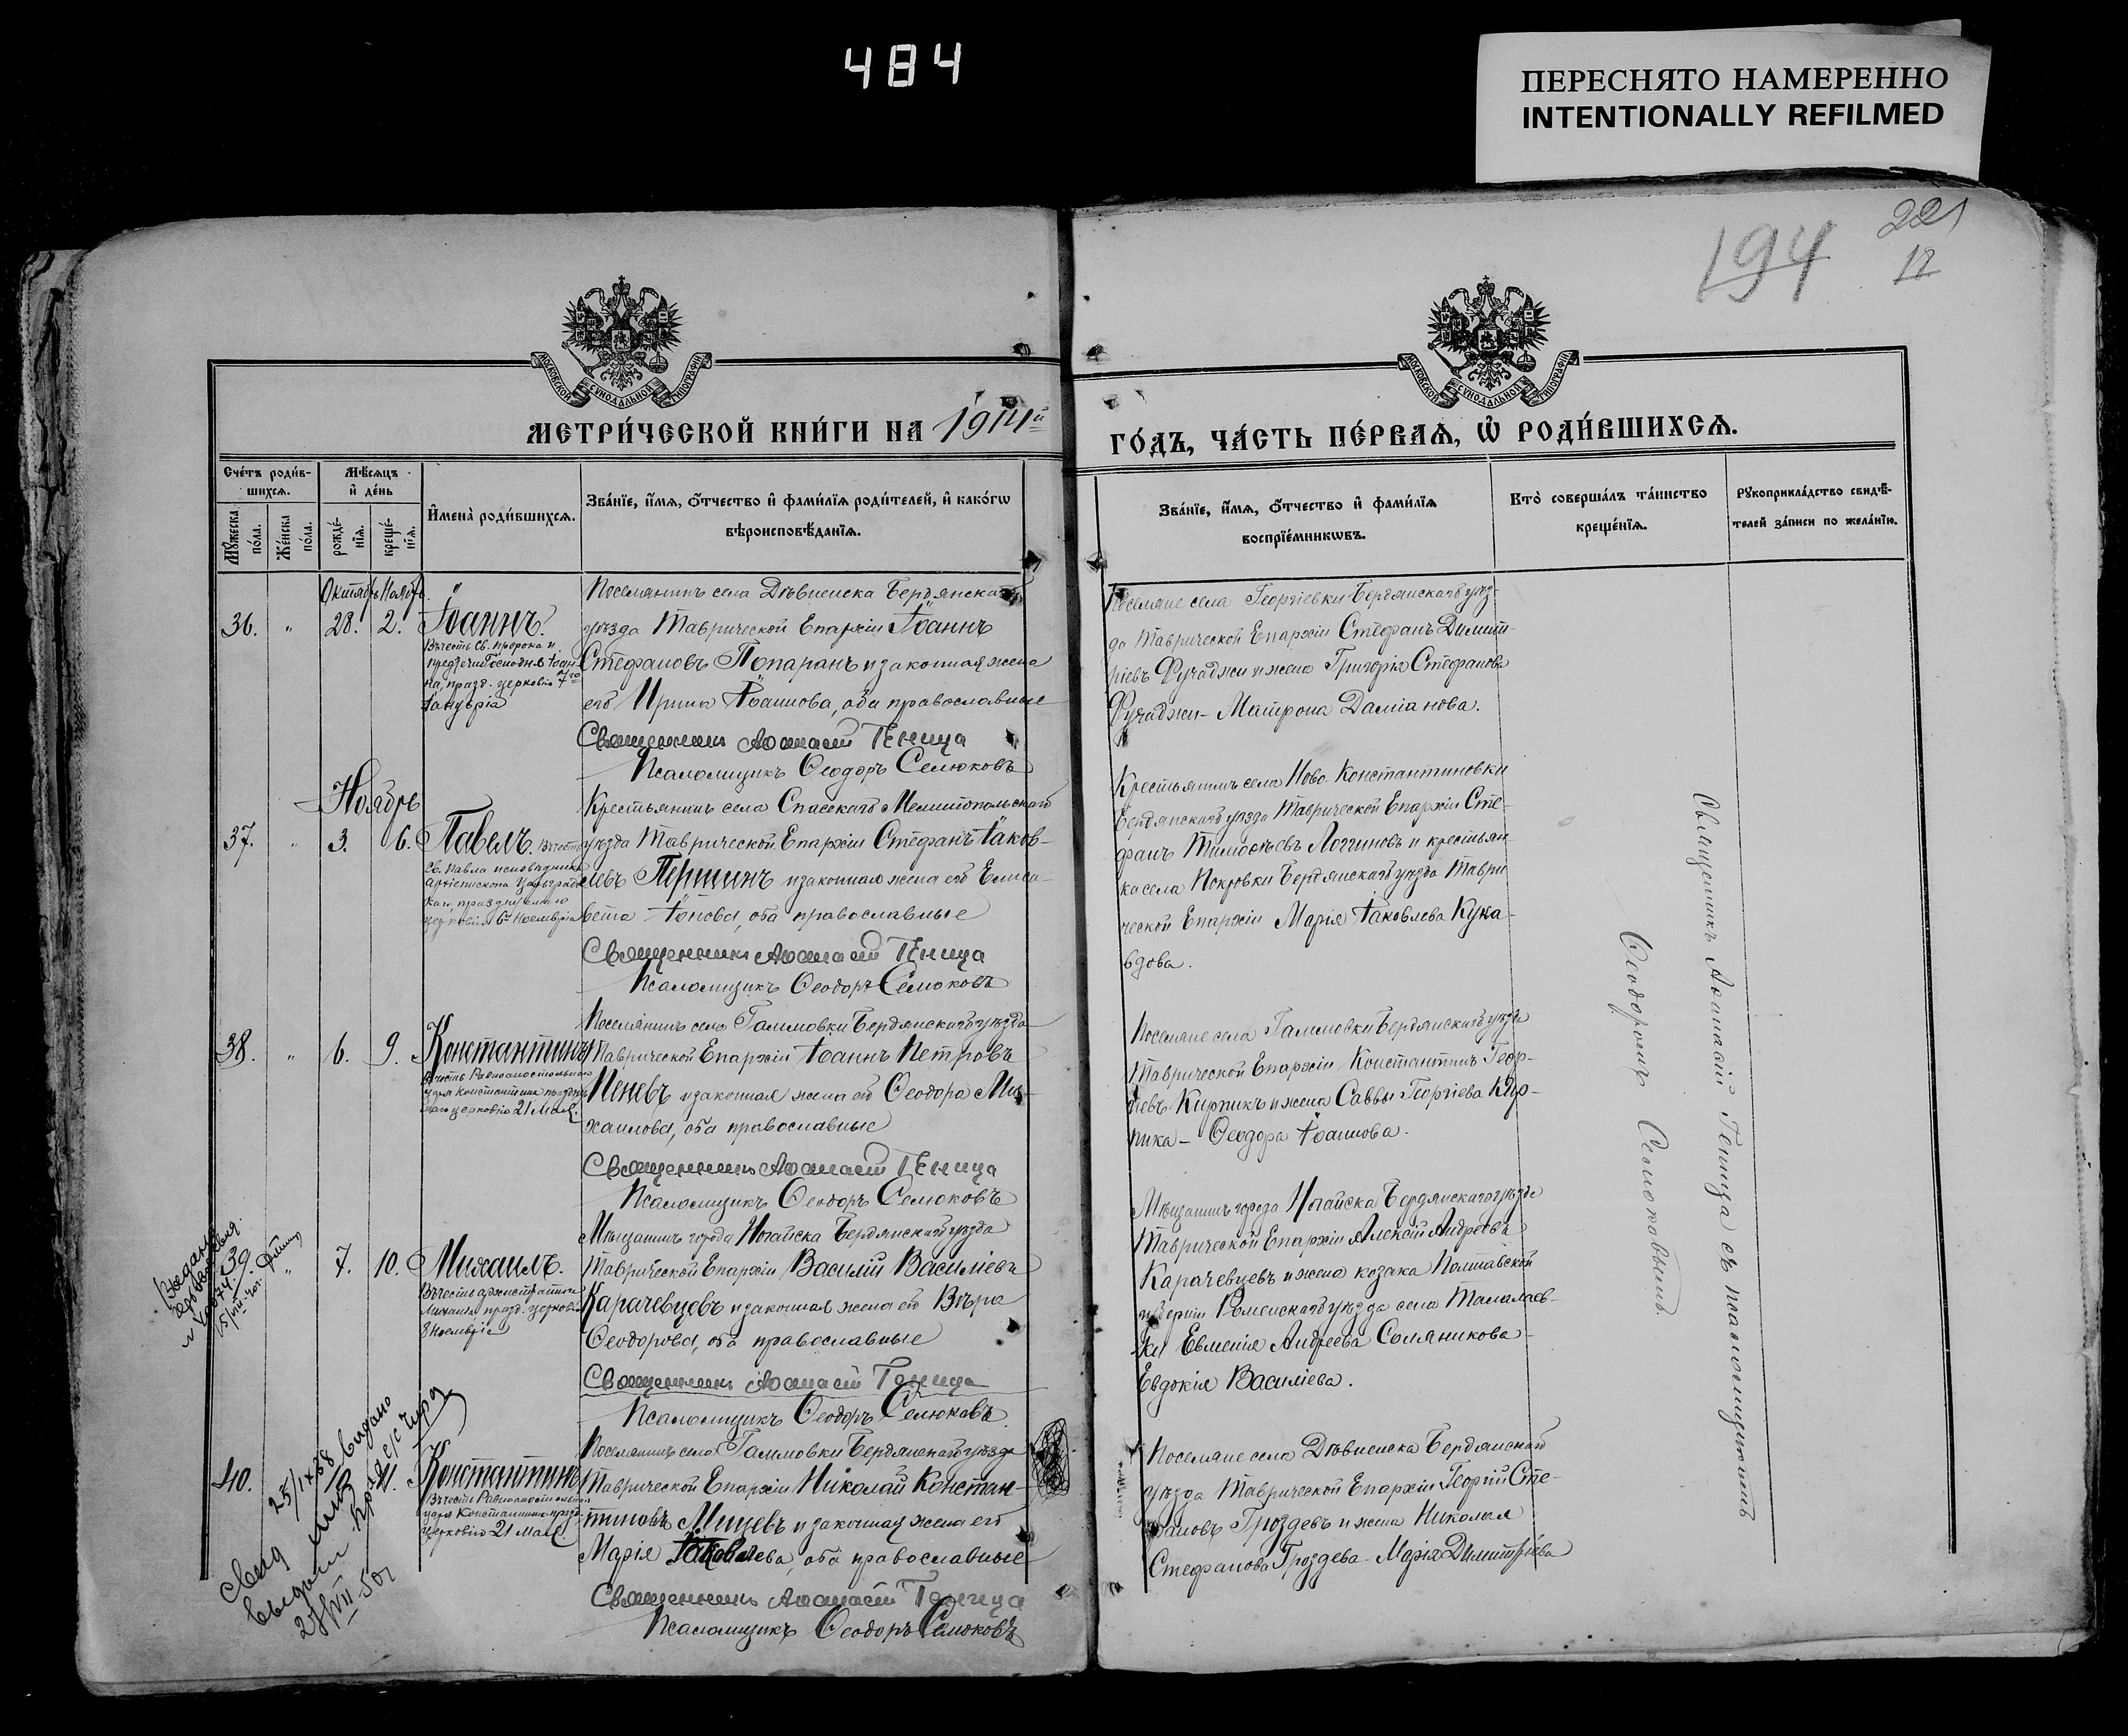 484
ПЕРЕСНЯТО НАМЕРЕННО
INTENTIONALLY REFILMED
194
221
12
МОСКОВСКОЙ СУНОДАЛЬНОЙ ТИПОГРАФІИ
МОСКОВСКОЙ СУНОДАЛЬНОЙ ТИПОГРАФІИ
МЕТРИ́ЧЕСКОЙ КНИ́ГИ НА 1914й
ГО́ДЪ, ЧА́СТЬ ПЕ́РВАѦ, Ѡ҆ РОДИ́ВШИХСѦ.
Счетъ роди́в-
шихсѧ.
Мꙋжеска по́ла.
Же́нска по́ла.
Мѣ́сѧцъ и҆ де́нь
рожде́-
нїѧ.
креще́-
нїѧ.
И҆мена̀ роди́вшихсѧ.
Зва́нїе, и҆́мѧ, ѻ҆́тчество и҆ фами́лїѧ роди́телей, и҆ како́гѡ
вѣроисповѣ́данїѧ.
Зва́нїе, и҆́мѧ, ѻ҆́тчество и҆ фами́лїѧ
воспрїе́мникѡвъ.
Кто̀ соверша́лъ та́инство
креще́нїѧ.
Рꙋкоприкла́дство свидѣ́-
телей за́писи по жела́нїю.
Октябрь Ноябрь
36. " 28. 2. Іоаннъ.
Въ честь Св. пророка и
предтечи Господня Іоан-
на, празд. церковію 7го
Януарія
Поселянинъ села Дѣвненска Бердянскаго
уѣзда Таврической Епархіи Іоаннъ
Стефановъ Попаранъ и законная жена
его Ирина Іоаннова, оба православные
Священникъ Аѳанасій Геница
Псаломщикъ Ѳеодоръ Селюковъ
Поселяне села Георгіевки Бердянскаго уѣз-
да Таврической Епархіи Стефанъ Димит-
ріевъ Фучаджи и жена Григорія Стефанова
Фучаджи - Матрона Даміанова.
Ноябрь
37. " 3. 6. Павелъ. Въ честь
Св. Павла исповѣдника
Архіепископа Цареград-
скаго, празднуемаго
церковію 6го Ноемврія
Крестьянинъ села Спасскаго Мелитопольскаго
уѣзда Таврической Епархіи Стефанъ Іаков-
левъ Першинъ и законная жена его Елиса-
вета Іонова, оба православные
Священникъ Аѳанасій Геница
Псаломщикъ Ѳеодоръ Селюковъ
Крестьянинъ села Ново-Константиновки
Бердянскаго уѣзда Таврической Епархіи Сте-
фанъ Тимоѳеевъ Логгиновъ и крестьян-
ка села Покровки Бердянскаго уѣзда Таври
ческой Епархіи Марія Іаковлева Кука-
вдова.
38. " 6. 9. Константинъ
Въ честь Равноапостольнаго
царя Константина праздн.
церковію 21 Мая.
Поселянинъ села Гаммовки Бердянскаго уѣзда
Таврической Епархіи Іоаннъ Петровъ
Пеневъ и законная жена его Ѳеодора Ми-
хаилова, оба православные
Священникъ Аѳанасій Геница
Псаломщикъ Ѳеодоръ Селюковъ
Поселяне села Гаммовки Бердянскаго уѣзда
Таврической Епархіи Константинъ Геор-
гіевъ Кирпикъ и жена Саввы Георгіева Кир-
пика - Ѳеодора Іоаннова.
39. " 7. 10. Михаилъ.
Въ честь архистратига
Михаила празд. церковію
8 Ноемврія
Мѣщанинъ города Ногайска Бердянскаго уѣзда
Таврической Епархіи Василій Василіевъ
Карачевцевъ и законная жена его Вѣра
Ѳеодорова, оба православные
Священникъ Аѳанасій Геница
Псаломщикъ Ѳеодоръ Селюковъ.
Мѣщанинъ города Ногайска Бердянскаго уѣзда
Таврической Епархіи Алексій Андреевъ
Карачевцевъ и жена козака Полтавской
губерніи Роменскаго уѣзда села Талалаев-
ки Евменія Андреева Соляникова-
Евдокія Василіева.
40. 11. Константинъ
Въ честь Равноапостольнаго
царя Константина празд.
церковію 21 Мая
Поселянинъ села Гаммовки Бердянскаго уѣзда
Таврической Епархіи Николай Констан-
тиновъ Мицевъ и законная жена его
Марія Іаковлева, оба православные
Священникъ Аѳанасій Геница
Псаломщикъ Ѳеодоръ Селюковъ
Поселяне села Дѣвненска Бердянскаго
уѣзда Таврической Епархіи Георгій Сте-
фановъ Гроздевъ и жена Николая
Стефанова Гроздева - Марія Димитріева
Священникъ Аѳанасій Геница съ псаломщикомъ
Ѳеодоромъ Селюковымъ.
25/IX 38 видано
выдан
27/VII-50г